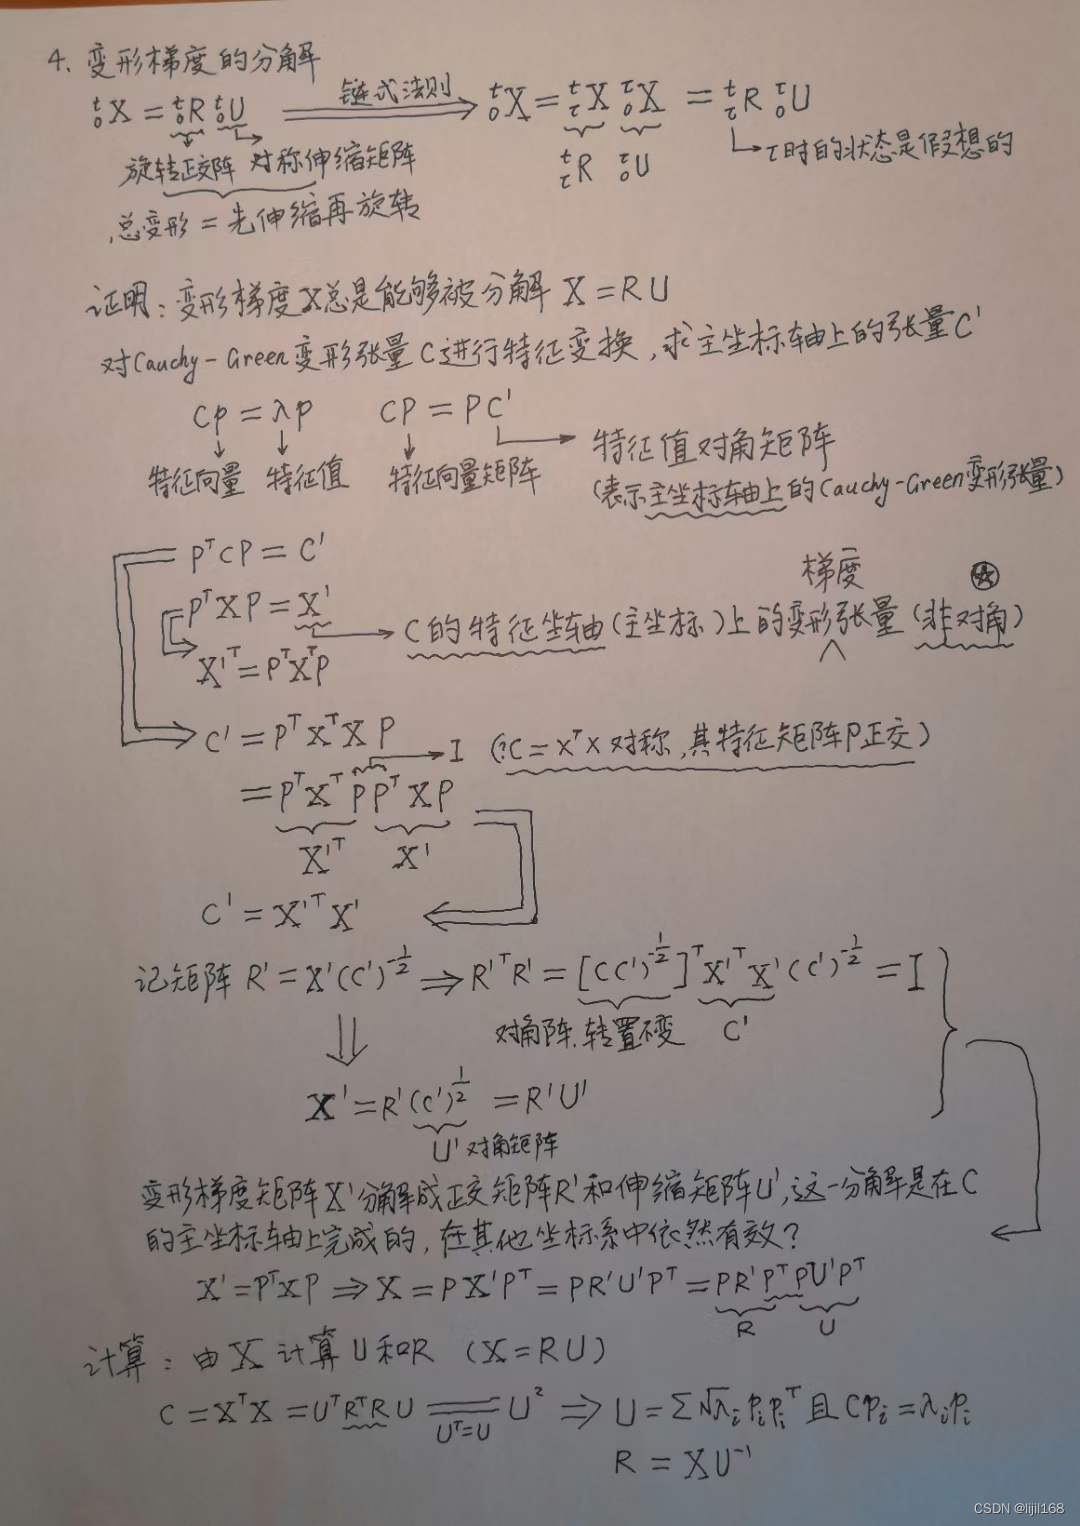 4、变形梯度的分解
ᵗ₀X = ᵗ₀R ᵗ₀U ⟹ 链式法则 ᵗ₀X = ᵗ_τX ^τ₀X = ᵗ_τR ^τ₀U
旋转正交阵 对称伸缩矩阵 ᵗ_τR ^τ₀U τ时的状态是假想的
总变形 = 先伸缩再旋转
证明: 变形梯度X总是能够被分解 X = RU
对Cauchy-Green变形张量C进行特征变换, 求主坐标轴上的张量C'
Cp = λp CP = PC'
特征向量 特征值 特征向量矩阵 特征值对角矩阵
(表示主坐标轴上的Cauchy-Green变形张量)
PᵀCP = C'
梯度
PᵀXP = X'
C的特征坐轴(主坐标)上的变形张量(非对角)
X'ᵀ = PᵀXᵀP
C' = PᵀXᵀXP I (∵C = XᵀX 对称, 其特征矩阵P正交)
= PᵀXᵀPPᵀXP
X'ᵀ X'
C' = X'ᵀX'
记矩阵 R' = X'(C')^-1/2 ⇒ R'ᵀR' = [(C')^-1/2]ᵀX'ᵀX'(C')^-1/2 = I
对角阵、转置不变 C'
X' = R'(C')^1/2 = R'U'
U' 对角矩阵
变形梯度矩阵X'分解成正交矩阵R'和伸缩矩阵U', 这一分解是在C
的主坐标轴上完成的, 在其他坐标系中依然有效?
X' = PᵀXP ⇒ X = PX'Pᵀ = PR'U'Pᵀ = PR'PᵀPU'Pᵀ
R U
计算: 由X计算U和R (X = RU)
C = XᵀX = UᵀRᵀRU = U² ⇒ U = Σ√λᵢpᵢpᵢᵀ 且 Cpᵢ = λᵢpᵢ
Uᵀ=U
R = XU⁻¹
CSDN @lijil168